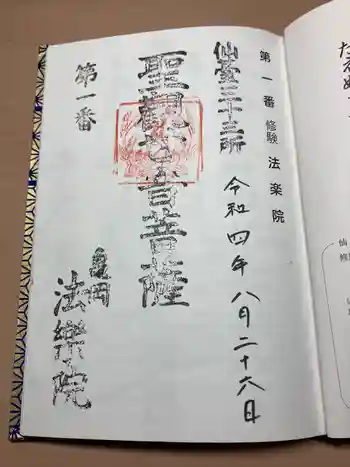 第一番 修験 法楽院
仙臺三十三所
令和四年八月二十六日
聖觀世音菩薩
第一番
亀岡
法樂院